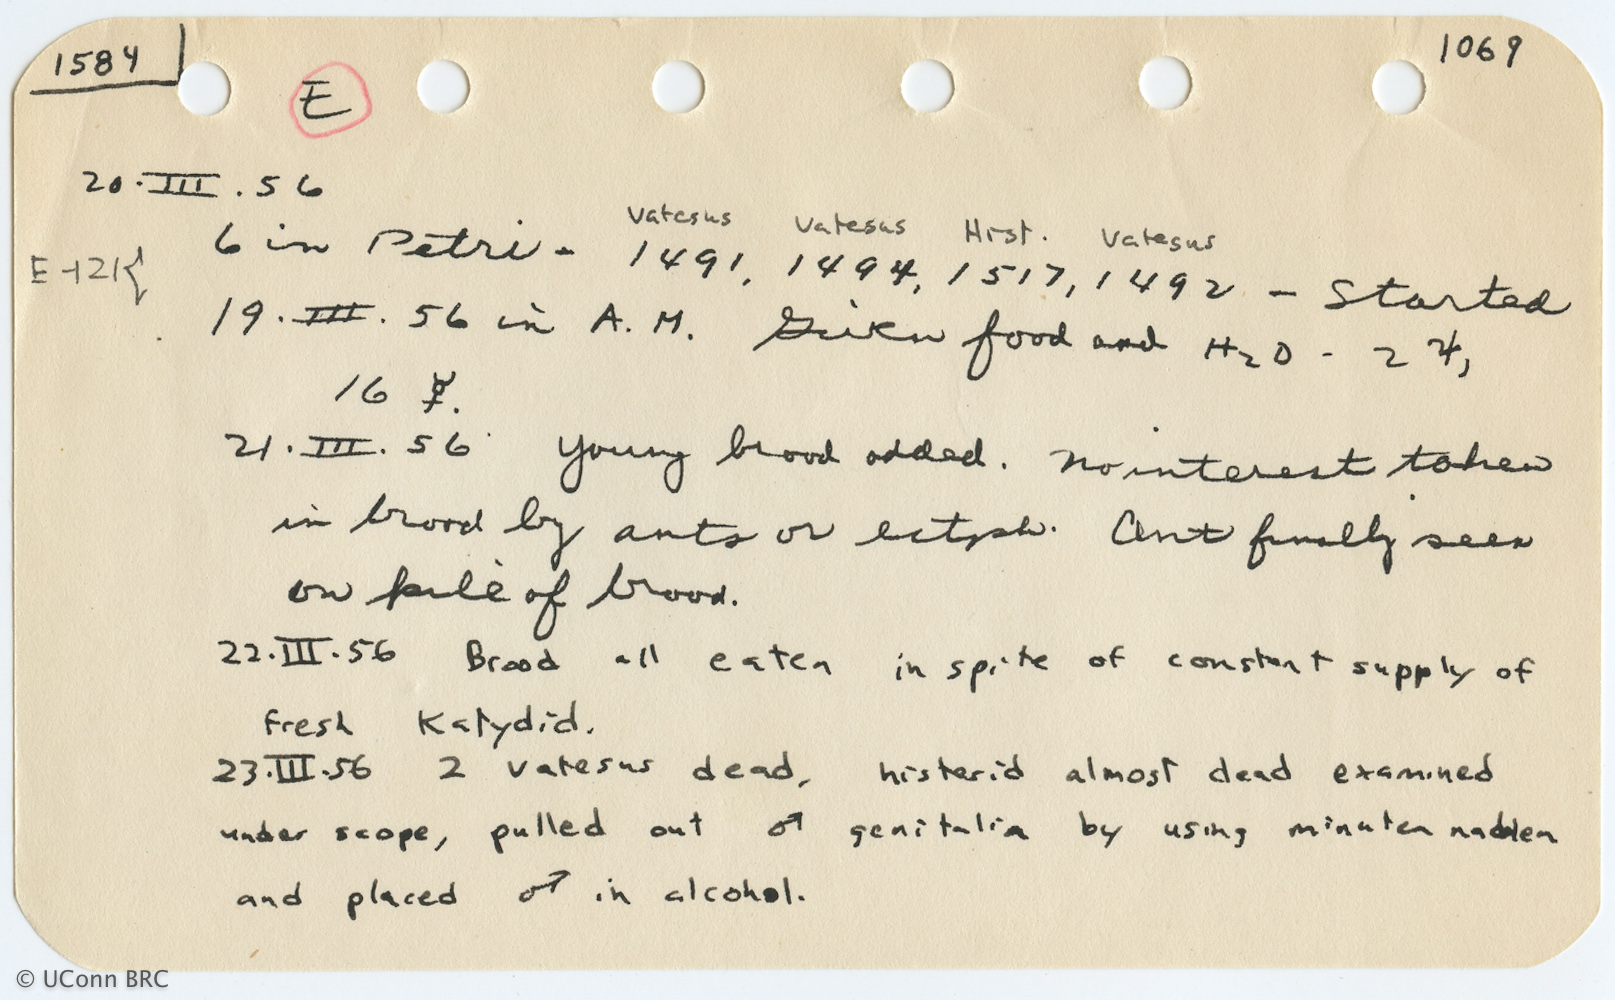 1584
1069
E
20.III.56
Vatesus Vatesus Hist. Vatesus
6 in Petri - 1491, 1494, 1517, 1492 - Started
E-121{
19.III.56 in A.M. Given food and H2O - 2 ♃,
16 ☿.
21.III.56 Young brood added. No interest taken
in brood by ants or ectoph. Ant finally seen
on pile of brood.
22.III.56 Brood all eaten in spite of constant supply of
fresh Katydid.
23.III.56 2 Vatesus dead, histerid almost dead examined
under scope, pulled out ♂ genitalia by using minuten nadden
and placed ♂ in alcohol.
© UConn BRC